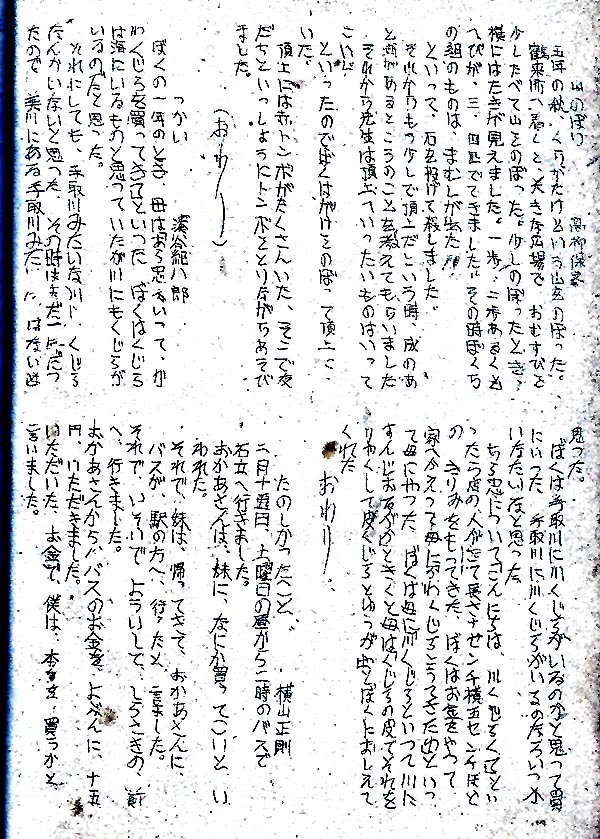 山のぼり　高柳保彦
五年の秋、くりがたけという山をのぼった。
鶴来町へ着くと、大きな広場で、おむすびを
少したべて山をのぼった。少しのぼったとき、
横にはたきが見えました。一歩、二歩あるくと
へびが、三、四匹でてきました。その時ぼくち
の組のものは、まむしが出た!!
といって、石を投げて殺しました。
それからもう少しで頂上だという時、成のあ
と
があるところのことを教えてもらいました
それから先生は頂上へいったいものはいって
こいと
といったのでぼくはがけをのぼって頂上に
いた。
頂上には赤トンボがたくさんいた、そこで友
だちといっしょにトンボをとりながらあそび
ました。
(おわり)
つかい　濱谷紀八郎
ぼくの一年のとき、母はある思をいって、か
わくじらを買ってきてといった。ぼくはくじら
は海にいるものと思っていたが川にもくじらが
いるのだと思った。
それにしても、手取川みたいな川に、くじら
なんかいないと思った。その時はまだ一年だっ
たので、美川にある手取川みたい
はない
思った。
ぼくは手取川に川くじらがいるのかと思って買
にいった、手取川に川くじらがいるのなら、いつか
いなたいなと思った。
ある店について「こんにちは、川くじらくて」とい
ったら店の人がきて長さ十センチ横五センチほど
の、きりみをもってきた、ぼくはお金をやって
家へかえって母に「かわくじらこうてきたわ」といっ
て母にやった、ぼくは母に「川くじらといって川に
すんじおるがか」ときくと母は「くじらの皮でそれを
りゃくして皮くじらとゆうがや」とぼくにおしえて
くれた
おわり。
たのしかったこと、　横山正則
二月十五日、土曜日の昼から二時のバスで
右女へ行きました。
おかあさんは、妹に、なにか買ってこいと、い
われた。
それで、妹は、帰ってきて、おかあさんに、
バスが、駅の方へ、行ったと、言ました。
それで、いそいで、よういして、しょうこぎの、前
へ、行きました。
おかあさんから、バスのお金を、よぶんに、十五
円、いただきました。
いただいた、お金で、僕は、本を 買うかと、
言いました。